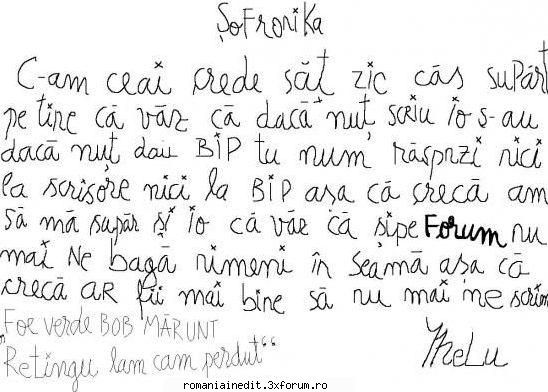 ȘoFroniKa
C-am ceai crede săt zic căs supărt
pe tine că văz că dacă nuț scriu io s-au
dacă nuț dau BIP tu num răsprzi nici
la scrisore nici la BIP așa că crecă am
să mă supăr și io că văz că sipe Forum nu
mai Ne bagă nimeni în seamă așa că
crecă AR fii mai bine să nu mai ne scrim
Foe verde BOB MĂRUNT
"Retingu lam cam perdut"
romaniainedit.3xforum.ro